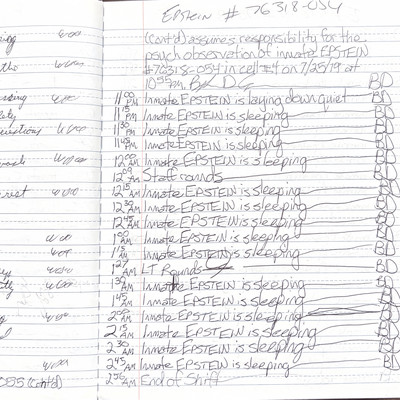 EPSTEIN # 76318-054
(Cont'd) assumes responsibility for the
psych observation of inmate EPSTEIN
#76318-054 in cell #4 on 7/25/19 at
10:55PM.
11:00 PM Inmate EPSTEIN is laying down quiet BD
11:15 PM Inmate EPSTEIN is sleeping BD
11:30 PM Inmate EPSTEIN is sleeping BD
11:45 PM Inmate EPSTEIN is sleeping BD
12:00 AM Inmate EPSTEIN is sleeping BD
12:09 AM Staff rounds BD
12:15 AM Inmate EPSTEIN is sleeping BD
12:30 AM Inmate EPSTEIN is sleeping BD
12:45 AM Inmate EPSTEIN is sleeping BD
1:00 AM Inmate EPSTEIN is sleeping BD
1:15 AM Inmate EPSTEIN is sleeping BD
1:27 AM LT Rounds BD
1:30 AM Inmate EPSTEIN is sleeping BD
1:45 AM Inmate EPSTEIN is sleeping BD
2:00 AM Inmate EPSTEIN is sleeping BD
2:15 AM Inmate EPSTEIN is sleeping BD
2:30 AM Inmate EPSTEIN is sleeping BD
2:45 AM Inmate EPSTEIN is sleeping BD
AM End of Shift